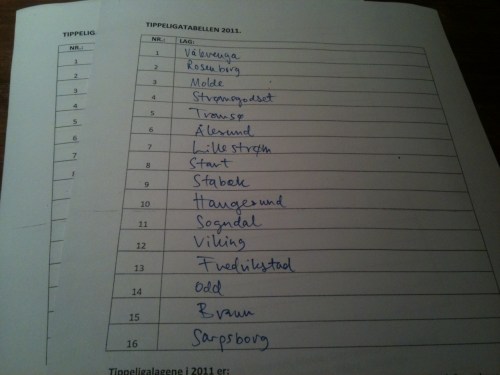 TIPPELIGATABELLEN 2011.
NR.: LAG:
1 Vålerenga
2 Rosenborg
3 Molde
4 Strømsgodset
5 Tromsø
6 Ålesund
7 Lillestrøm
8 Start
9 Stabæk
10 Haugesund
11 Sogndal
12 Viking
13 Fredrikstad
14 Odd
15 Brann
16 Sarpsborg
Tippeligalagene i 2011 er:
TIPPELIG
NR.:
1
2
3
4
5
6
7
8
9